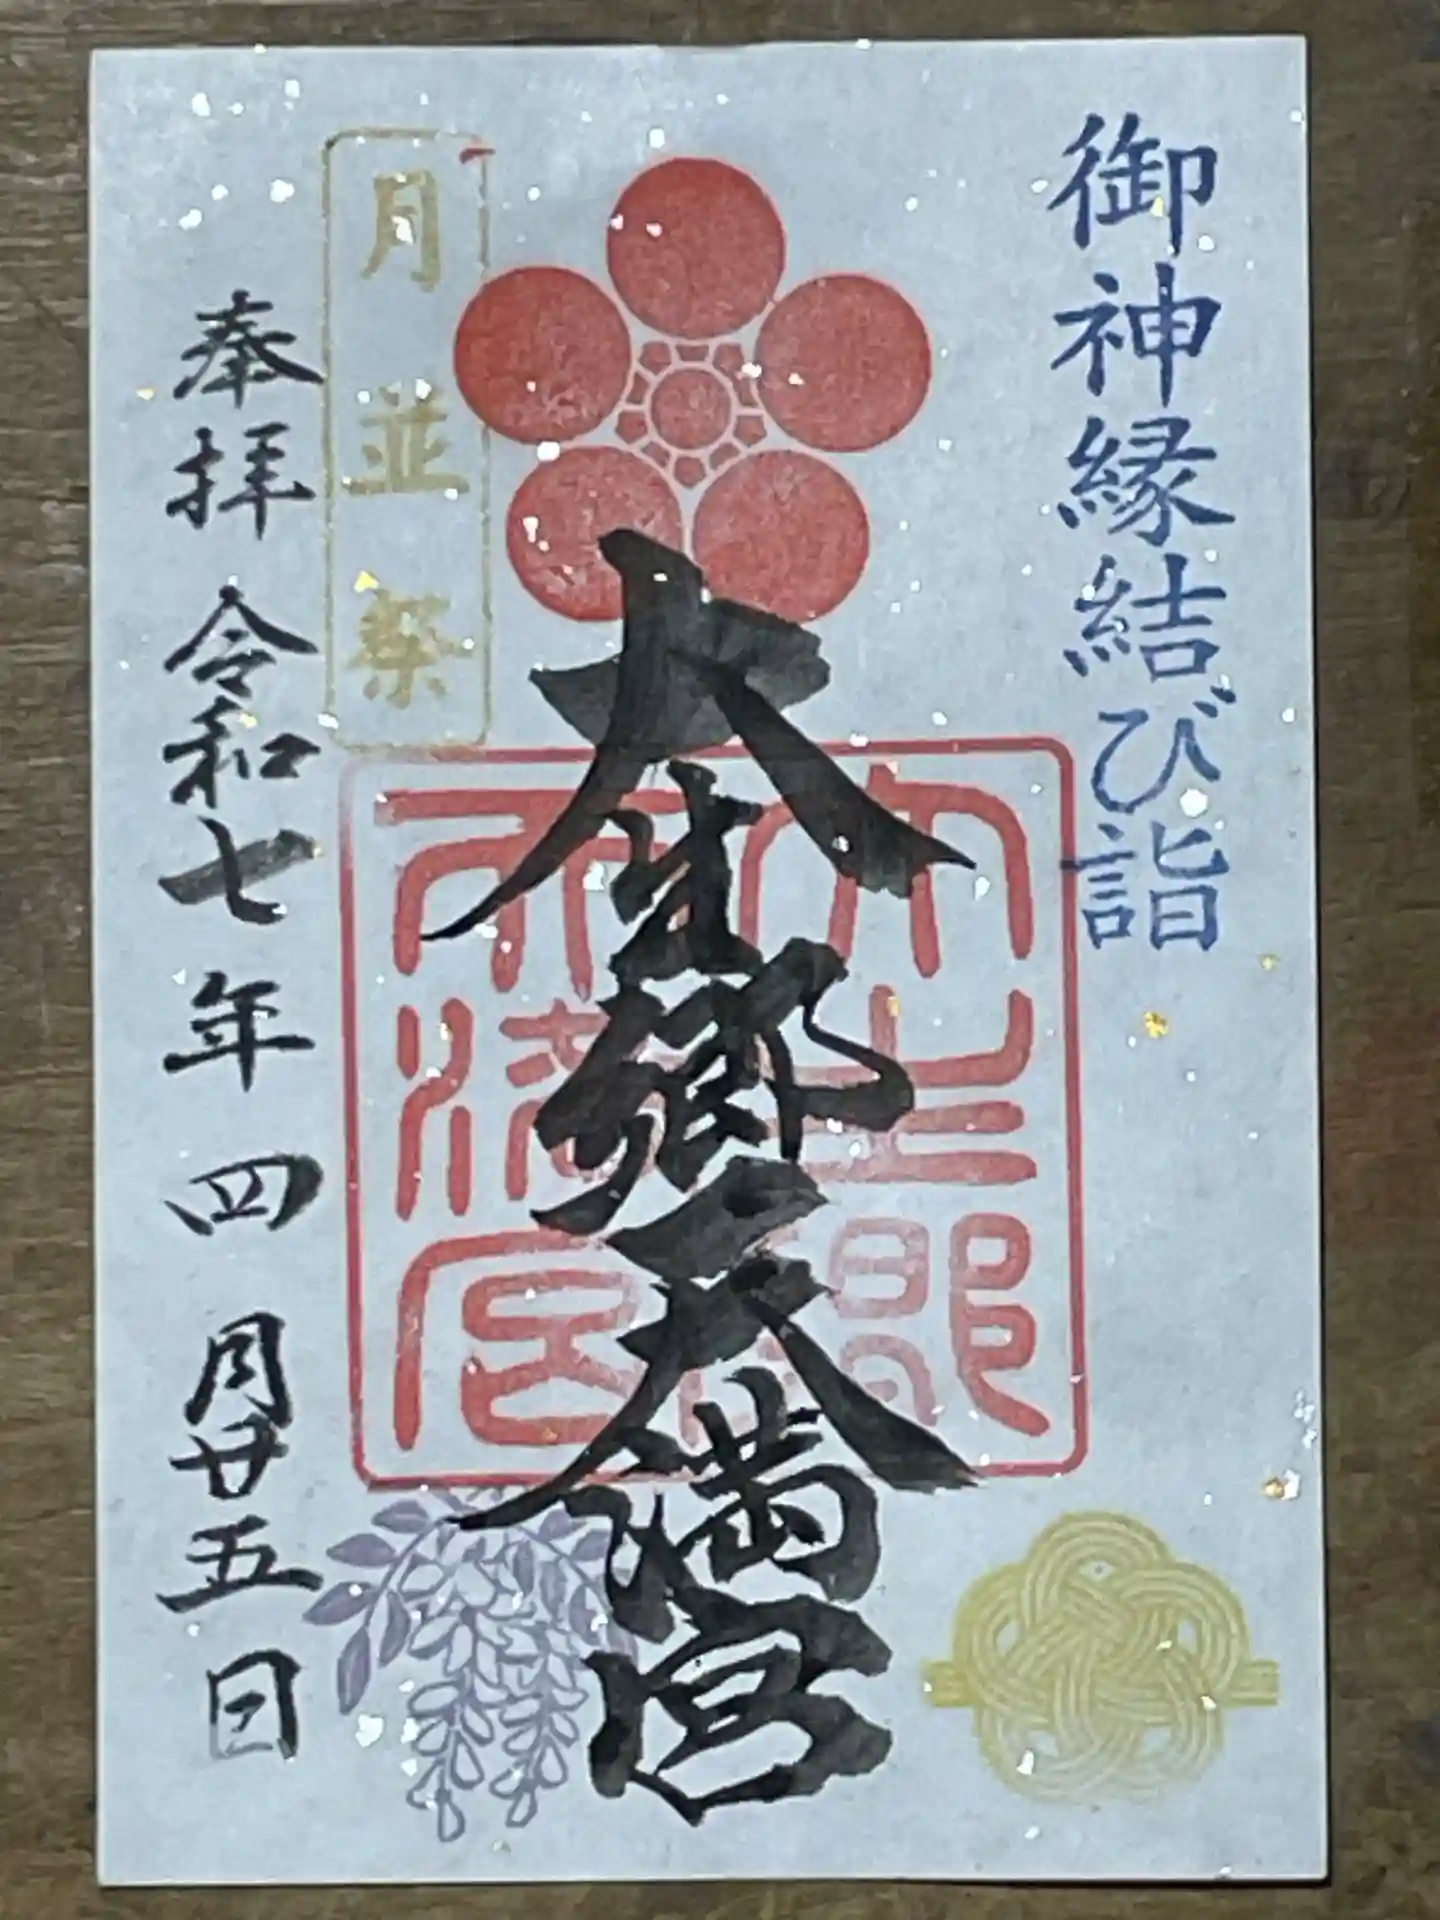 御神縁結び詣
大生郷天満宮
大生郷天満宮
月並祭
奉拝 令和七年四月廿五日